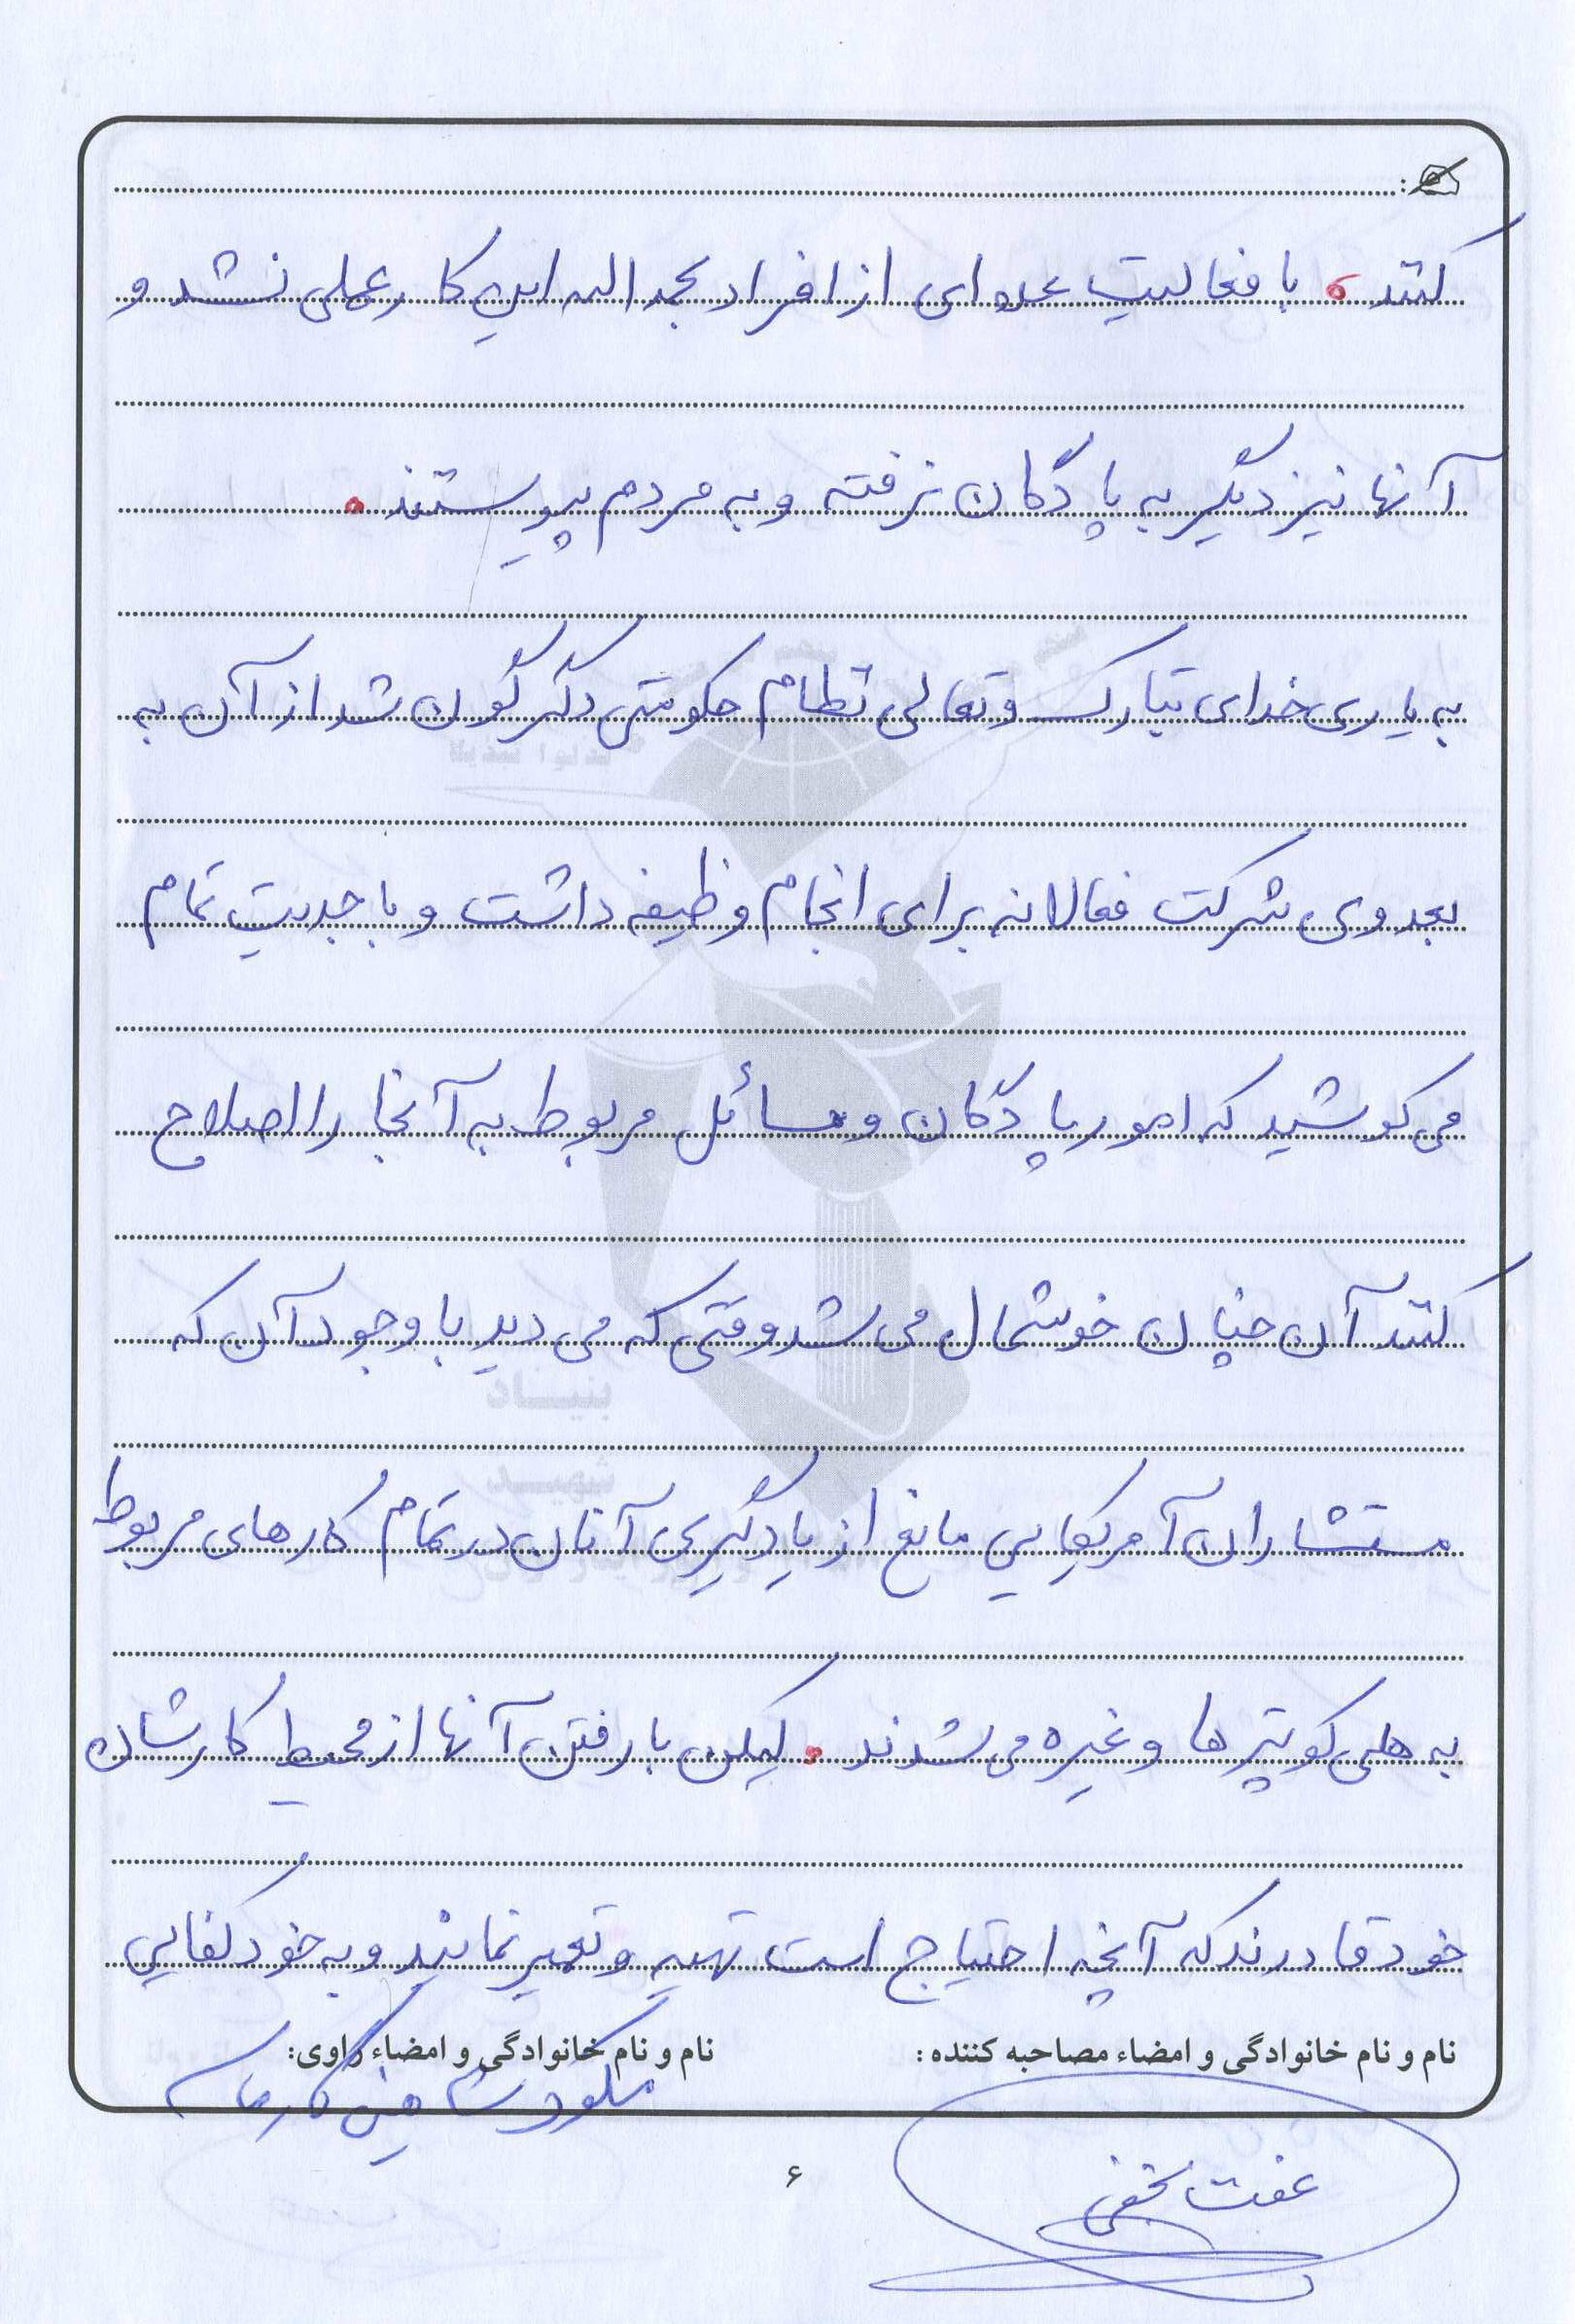 کنند. با فعالیت عده‌ای از افراد بحمدالله این کار عملی نشد و
آنها نیز دیگر به پادگان نرفته و به مردم پیوستند.
به یاری خدای تبارک و تعالی نظام حکومتی دگرگون شد از آن به
بعد وی شرکت فعالانه برای انجام وظیفه داشت و با جدیت تمام
می کوشید که امور پادگان و مسائل مربوط به آنجا را اصلاح
کنند آن چنان خوشحال می شد وقتی که می دید با وجود آن که
مستشاران آمریکایی مانع از یادگیری آنان در تمام کارهای مربوط
به هلی کوپترها و غیره می شدند. لیکن با رفتن آنها از محیط کارشان
خود قادرند که آنچه احتیاج است تهیه و تعمیر نمایند و به خودکفایی
نام و نام خانوادگی و امضاء مصاحبه کننده :
نام و نام خانوادگی و امضاء راوی:
عفت نخفی
۶
بنیاد
شهید